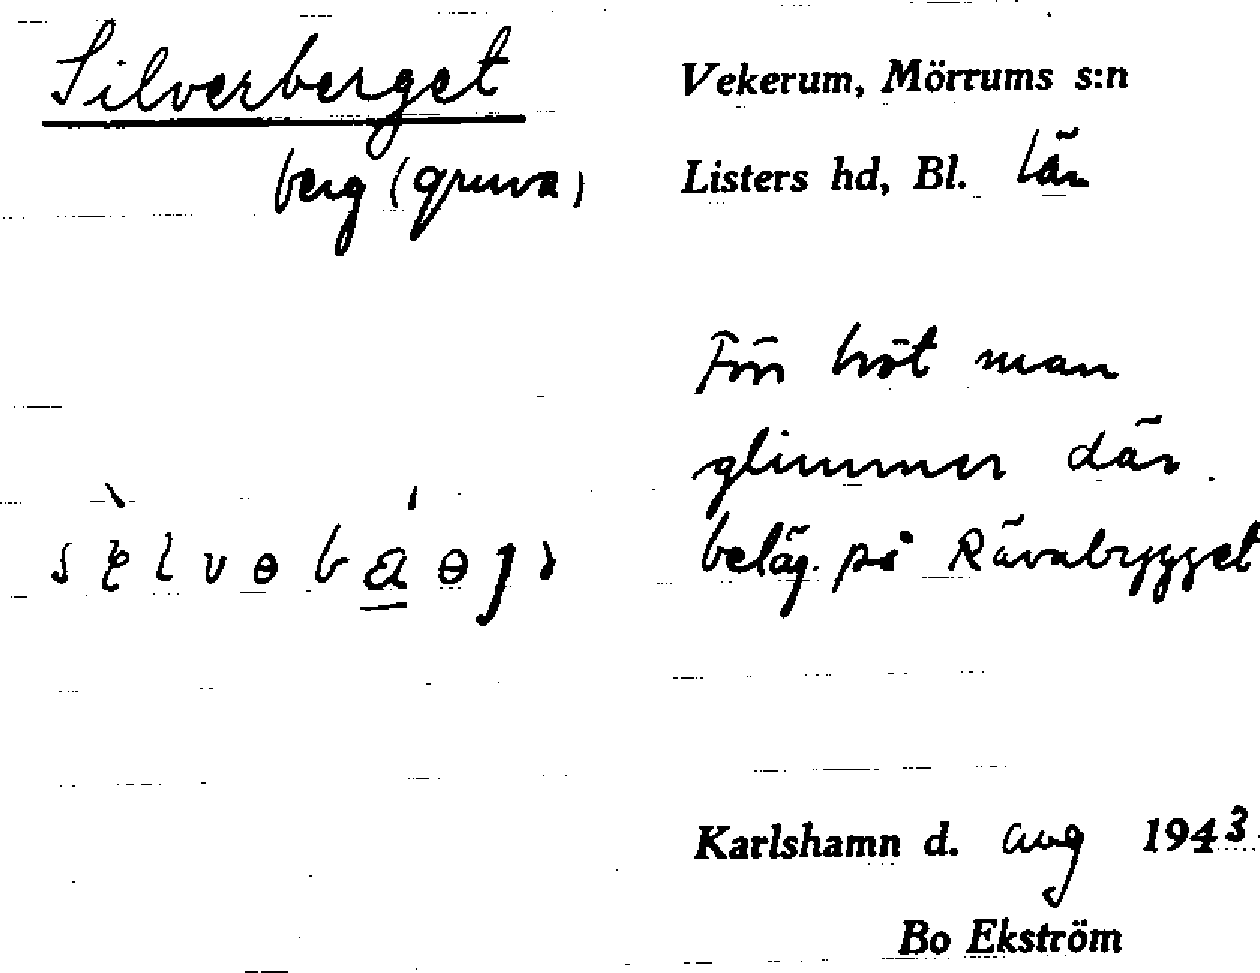 Silverberget
berg (gruva)
Vekerum, Mörrums s:n
Listers hd, Bl. län
Förr bröt man
glimmer där.
beläg. på Rävabrygget
Karlshamn d. aug 1943
Bo Ekström